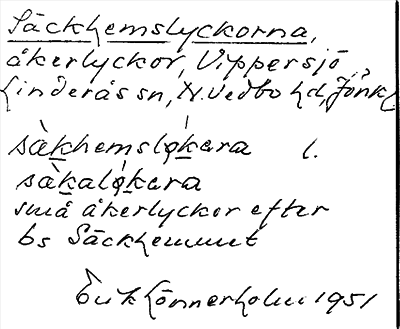 Säckhemslyckorna,
åkerlyckor, Vippersjö,
Linderås sn, N. Vedbo hd, Jönk.
sàkhemslo̩kara l.
sàkalo̩kara
små åkerlyckor efter
bs Säckhemmet
Erik Lönnerholm 1951